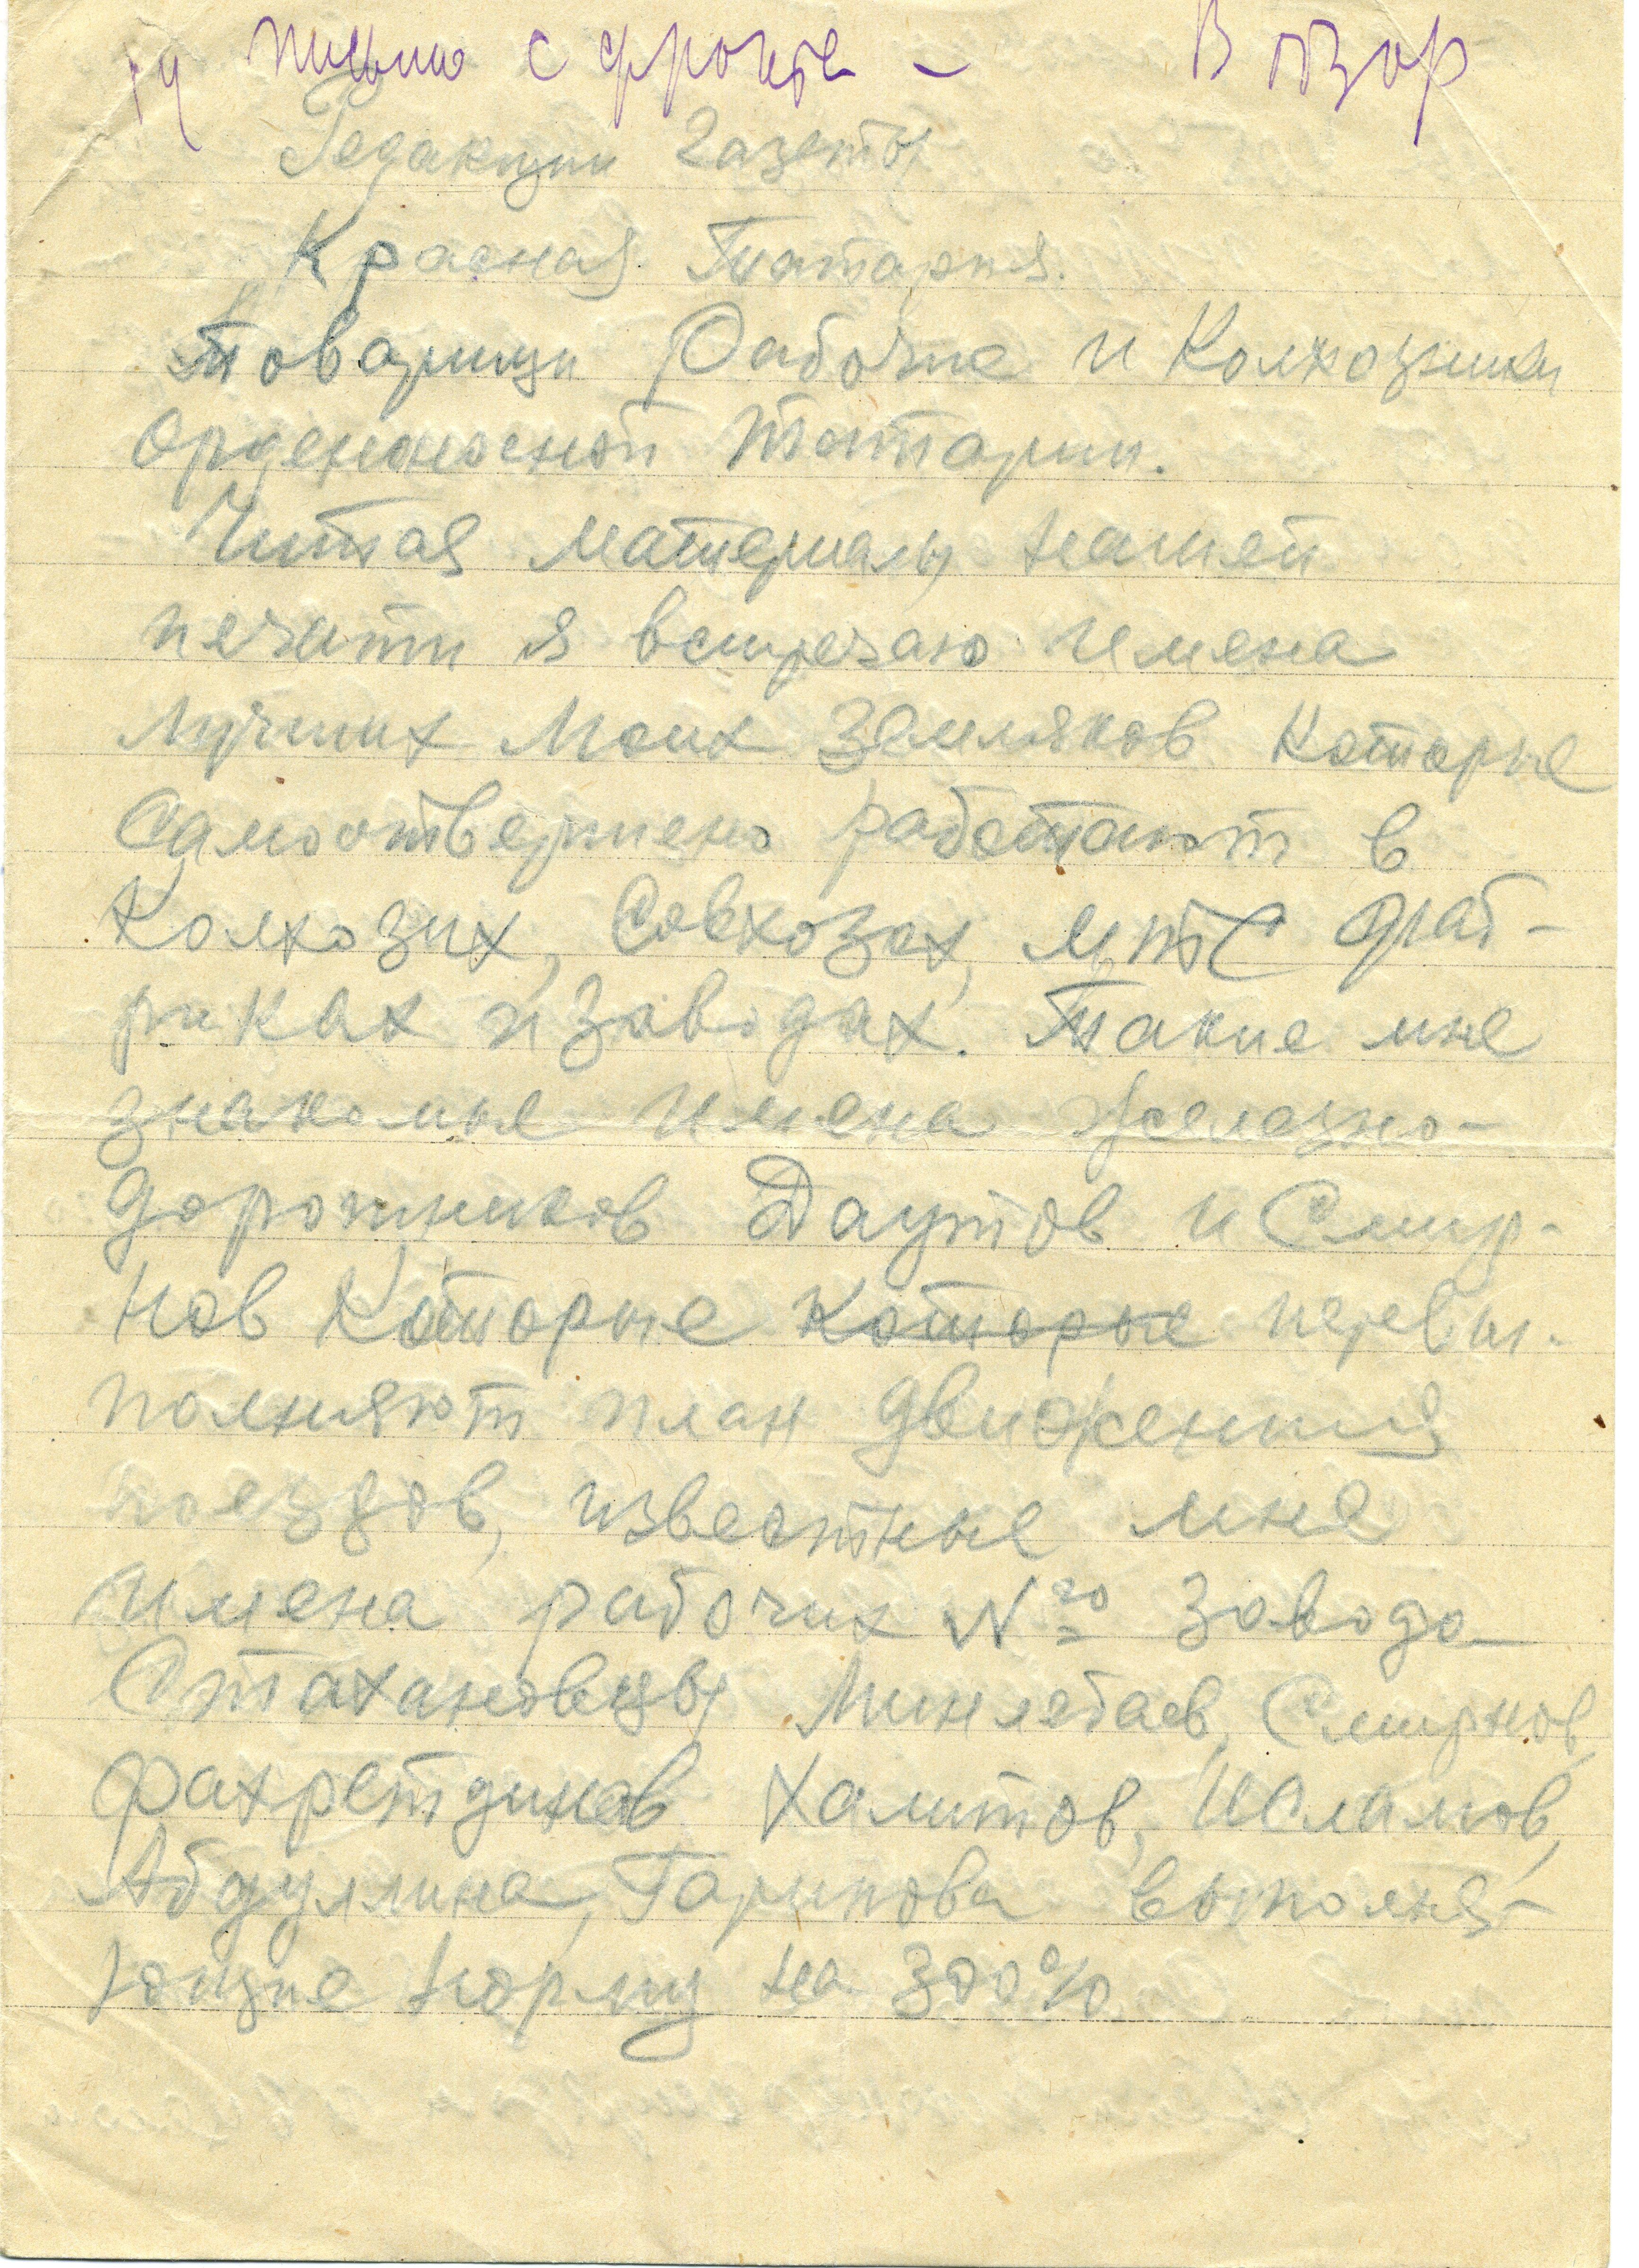 письмо с фронта – В обзор
Редакции газеты
Красная Татария.
Товарищи Рабочие и Колхозники
Орденоносной Татарии.
Читая материалы нашей
печати я встречаю имена
лучших моих земляков которые
самоотвержено работают в
Колхозих, Совхозах, МТС фаб-
риках и заводах. Такие мне
знакомые имена железно-
дорожников Даутов и Смир-
нов которые которые перевы-
полняют план движения
поездов, известные мне
имена рабочих №го завода
Стахановцы Минлебаев, Смирнов,
Фахретдинов Хамитов, Исламов,
Абдуллина, Гарипова выполня-
ющие норму на 300%